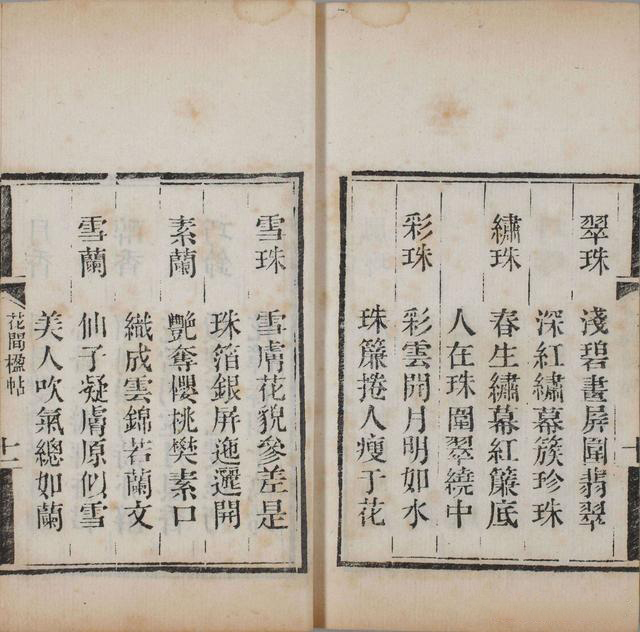 翠珠 淺碧畫屏圍翡翠
深紅繡幕簇珍珠
繡珠 春生繡幕紅簾底
人在珠圍翠繞中
彩珠 彩雲開月明如水
珠簾捲人瘦于花
十
雪珠 雪膚花貌參差是
珠箔銀屏迤邐開
素蘭 艷奪櫻桃樊素口
織成雲錦若蘭文
雪蘭 仙子凝膚原似雪
美人吹氣總如蘭
花間楹帖 十一